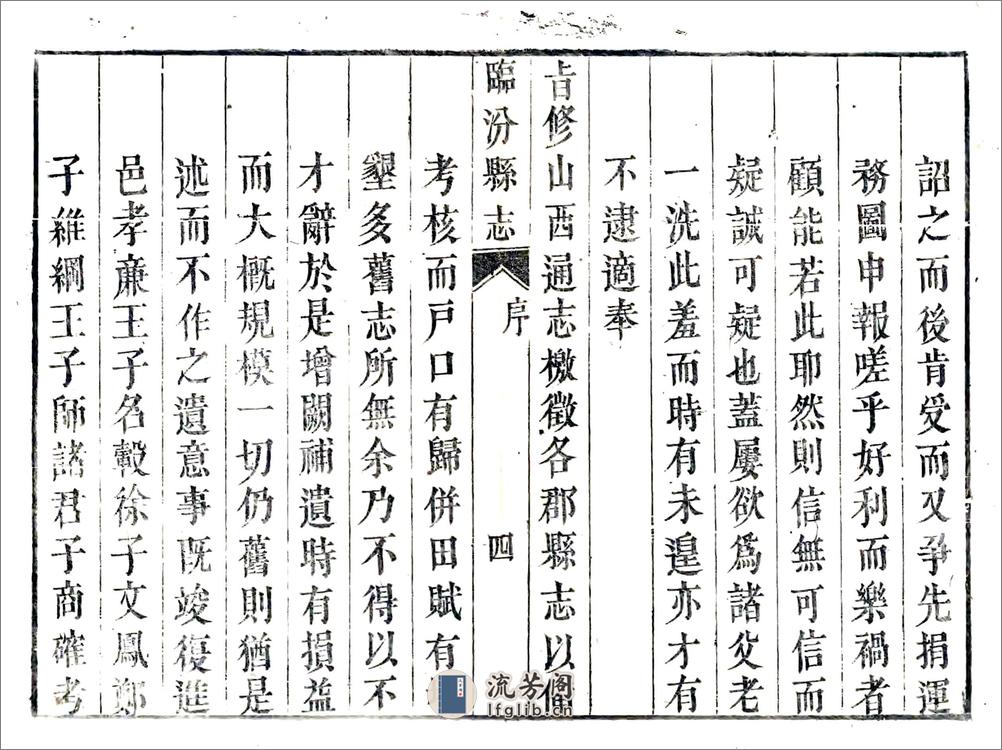 詔之而後肯受而又爭先捐運
務圖申報嗟乎好利而樂禍者
顧能若此耶然則信無可信而
疑誠可疑也蓋屢欲爲諸父老
一洗此羞而時有未遑亦才有
不逮適奉
旨修山西通志檄徵各郡縣志以備
臨汾縣志
序
四
考核而戸口有歸併田賦有
墾多舊志所無余乃不得以不
才辭於是增闕補遺時有損益
而大概規模一切仍舊則猶是
述而不作之遺意事既竣復進
邑孝亷王子名轂徐子文鳳鄭
子維綱王子師諸君子商確考
流芳阁
lfglib.cn